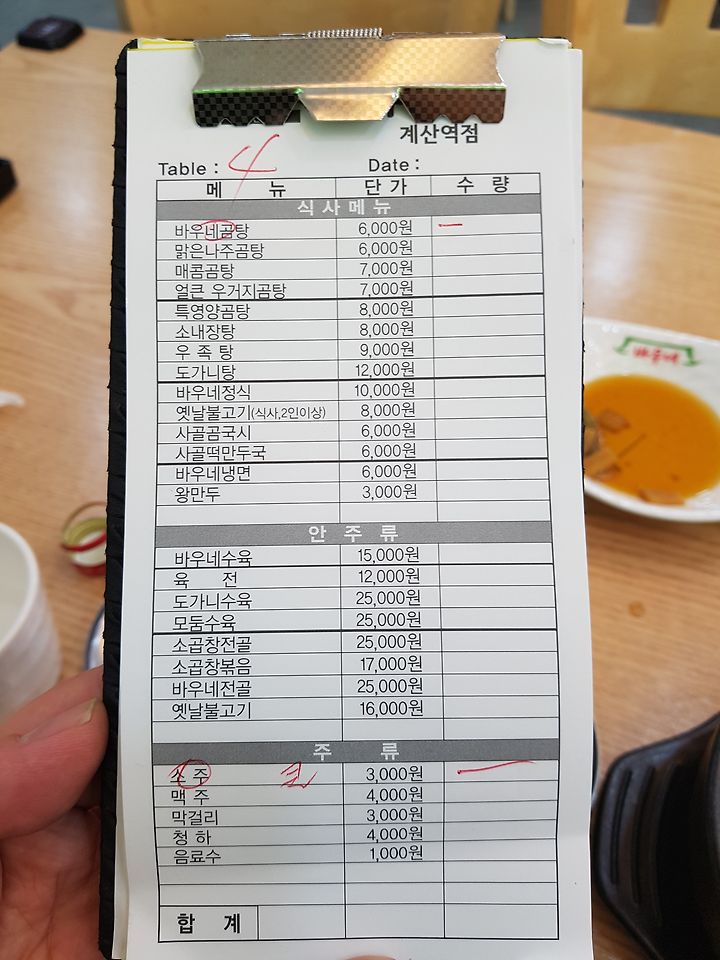 계산역점
Table : 4 Date :
메 뉴 단 가 수 량
식 사 메 뉴
바우네곰탕 6,000원 一
맑은나주곰탕 6,000원
매콤곰탕 7,000원
얼큰 우거지곰탕 7,000원
특영양곰탕 8,000원
소내장탕 8,000원
우 족 탕 9,000원
도가니탕 12,000원
바우네정식 10,000원
옛날불고기(식사,2인이상) 8,000원
사골곰국시 6,000원
사골떡만두국 6,000원
바우네냉면 6,000원
왕만두 3,000원
안 주 류
바우네수육 15,000원
육 전 12,000원
도가니수육 25,000원
모둠수육 25,000원
소곱창전골 25,000원
소곱창볶음 17,000원
바우네전골 25,000원
옛날불고기 16,000원
주 류
소 주 3,000원 一
맥 주 4,000원
막걸리 3,000원
청 하 4,000원
음료수 1,000원
합 계
바우네